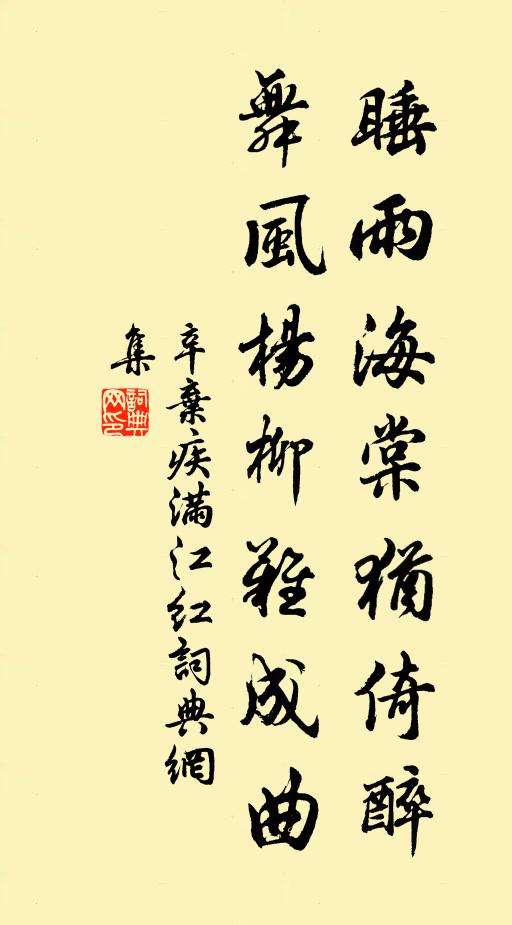 睡雨海棠猶倚醉
舞風楊柳難成曲
辛棄疾滿江紅詞典網
集
詞典
网印